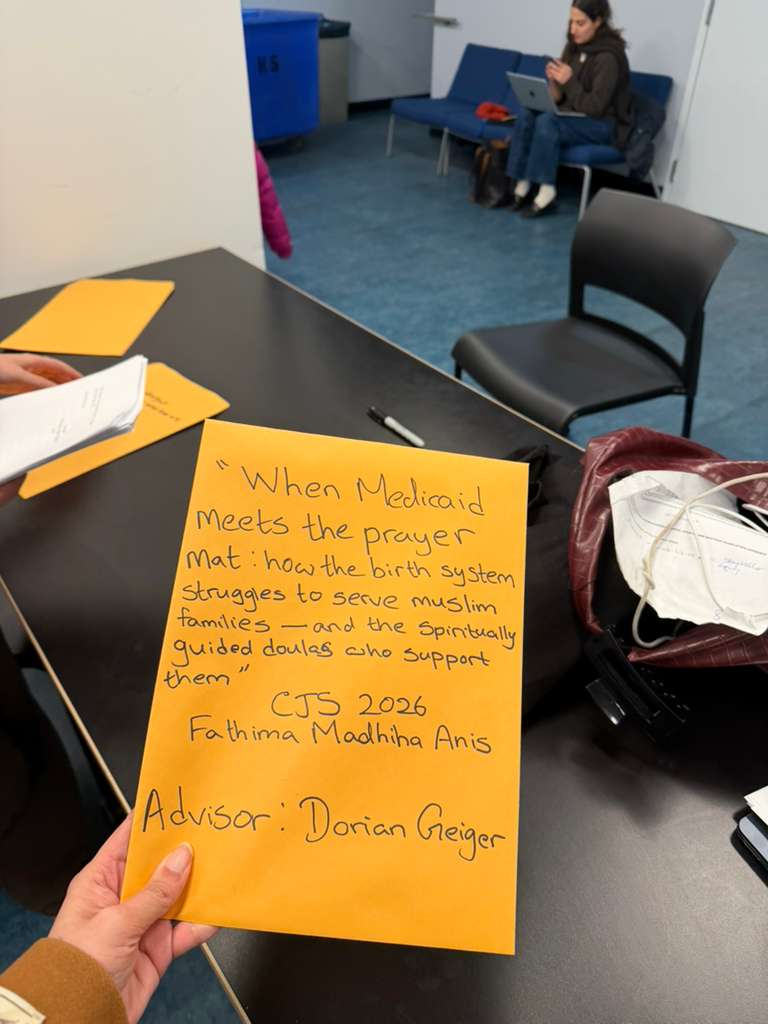 " When Medicaid
meets the prayer
mat : how the birth system
struggles to serve muslim
families — and the spiritually
guided doulas who support
them "
CJS 2026
Fathima Madhiha Anis
Advisor : Dorian Geiger